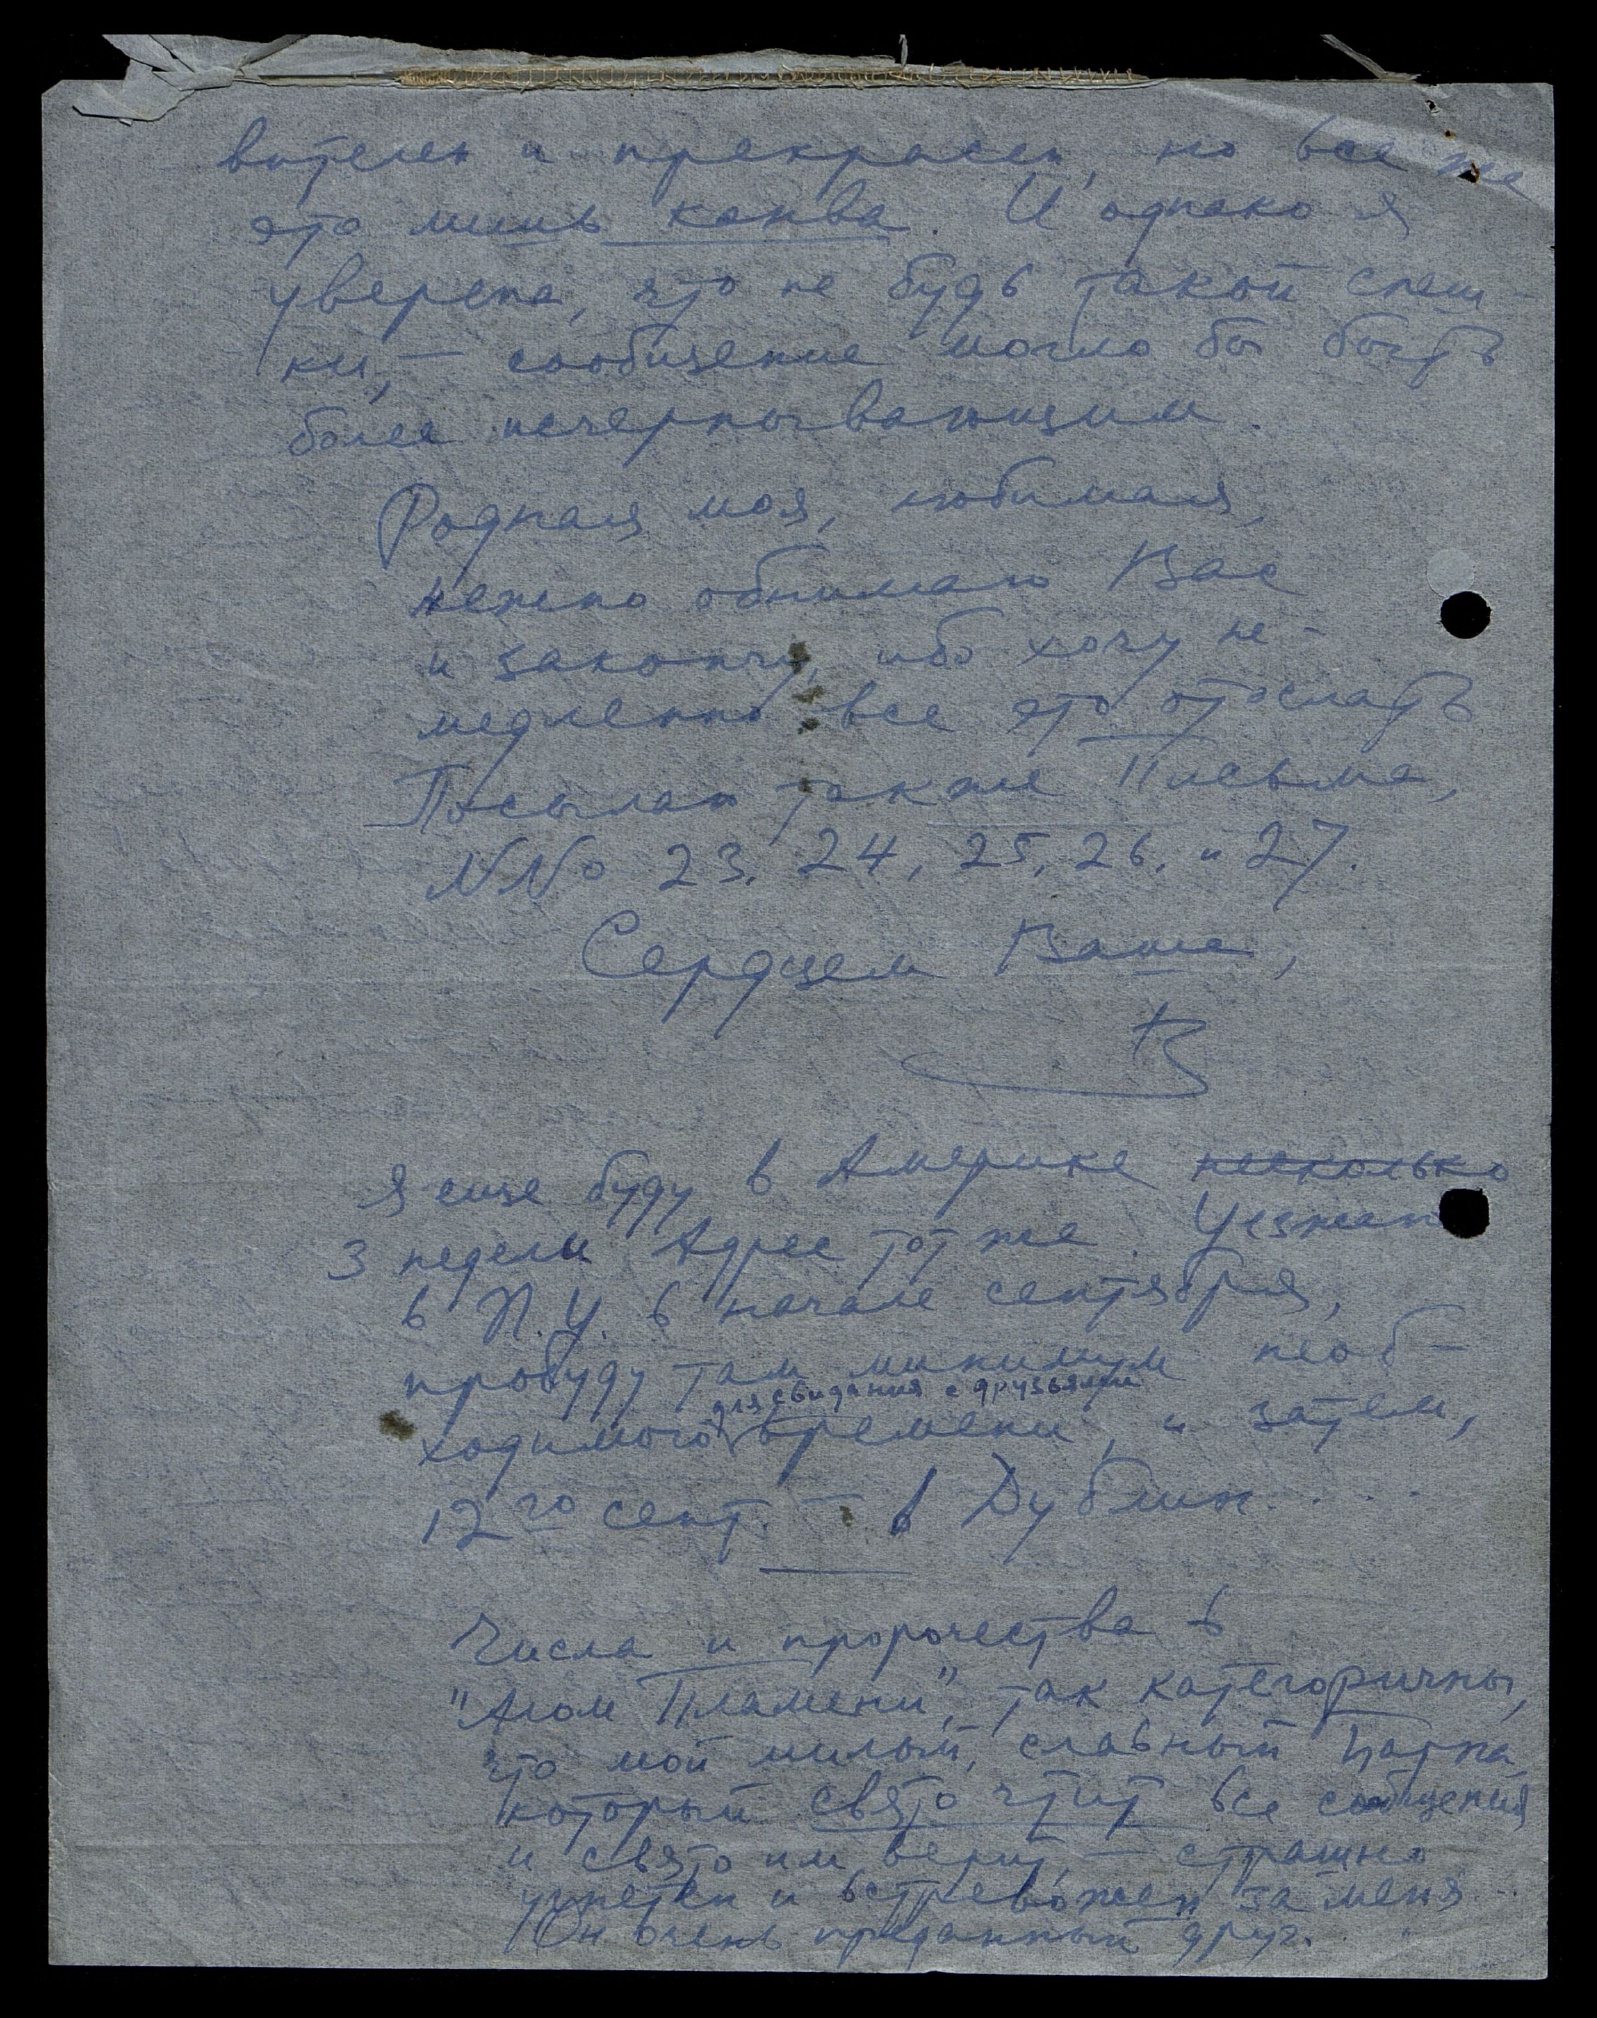 вателен и прекрасен, но все же
это лишь канва. И однако я
уверена, что не будь такой спеш-
ки, — сообщение могло бы быть
более исчерпывающим.
Родная моя, любимая,
нежно обнимаю Вас
и закончу, ибо хочу не-
медленно все это отослать
Посылаю также Письма,
NNo 23, 24, 25, 26, и 27.
Сердцем Ваша,
В
Я еще буду в Америке несколько
3 недели Адрес тот же. Уезжаю
в N.Y. в начале сентября,
пробуду там минимум необ-
для свидания с друзьями
ходимого времени, и затем,
12го сент. — в Дублин....
Числа и пророчества в
"Агом Пламени", так категоричны,
что мой милый, славный
который свято чтит все сообщения
и свято им верит, — страшно
угнетен и встревожен за меня...
Он очень преданный друг.